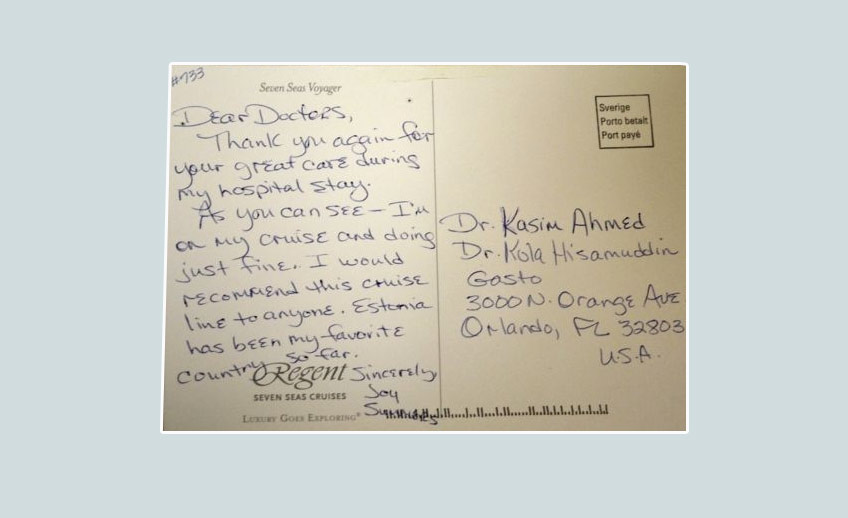 #733
Seven Seas Voyager
Dear Doctors,
Thank you again for
your great care during
my hospital stay.
As you can see – I'm
on my cruise and doing
just fine. I would
recommend this cruise
line to anyone. Estonia
has been my favorite
country so far.
Sincerely,
Joy
Regent
SEVEN SEAS CRUISES
LUXURY GOES EXPLORING®
Sverige
Porto betalt
Port payé
Dr. Kasim Ahmed
Dr. Kola Hisamuddin
Gasto
3000 N. Orange Ave
Orlando, FL 32803
U.S.A.